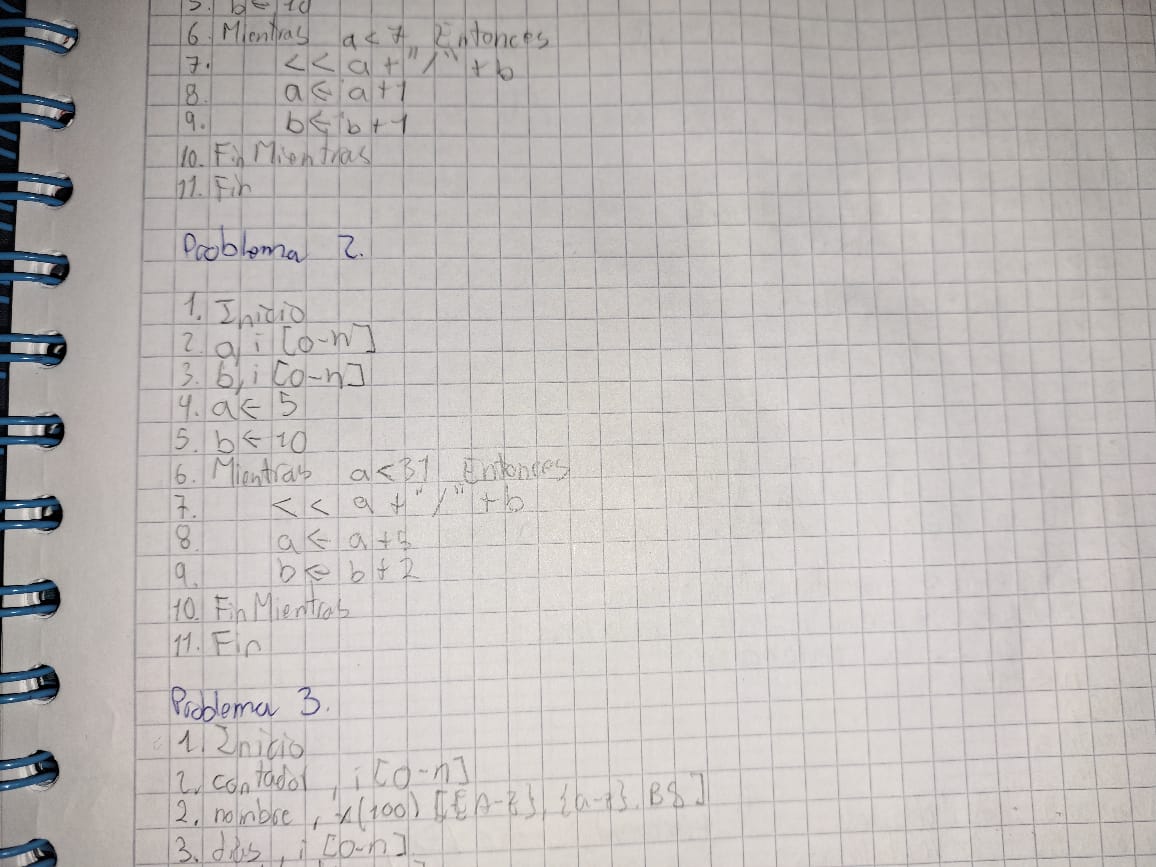 5. b← 10
6. Mientras a< 7 Entonces
7. << a + "/" + b
8. a← a+1
9. b← b+1
10. Fin Mientras
11. Fin
Problema 2.
1. Inicio
2. a, i [0-n]
3. b, i [0-n]
4. a← 5
5. b← 10
6. Mientras a<31 Entonces
7. << a + "/" + b
8. a← a+5
9. b← b+2
10. Fin Mientras
11. Fin
Problema 3.
1. Inicio
2. contador, i [0-n]
2. nombre, x(100)
3. dias, i [0-n]